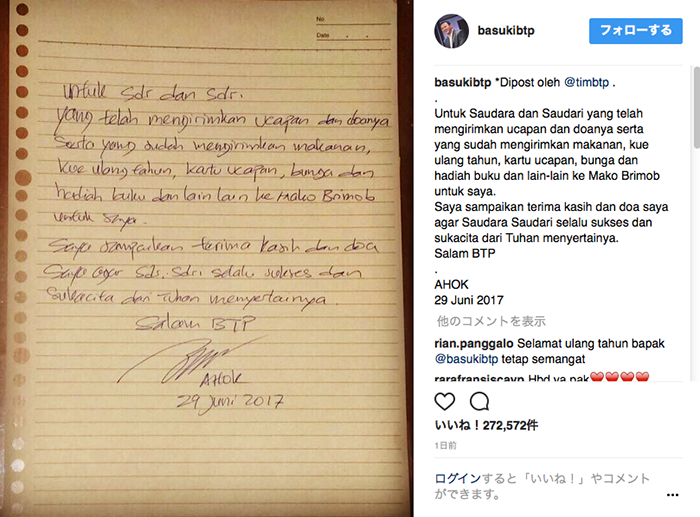 No
Date
untuk Sdr dan Sdri.
yang telah mengirimkan ucapan dan doanya
serta yang sudah mengirimkan makanan,
kue ulang tahun, kartu ucapan, bunga dan
hadiah buku dan lain lain ke Mako Brimob
untuk saya.
Saya sampaikan terima kasih dan doa
saya agar Sdr. Sdri selalu sukses dan
sukacita dari Tuhan menyertainya.
Salam BTP
AHOK
29 Juni 2017
basukibtp
フォローする
basukibtp *Dipost oleh @timbtp .
.
Untuk Saudara dan Saudari yang telah
mengirimkan ucapan dan doanya serta
yang sudah mengirimkan makanan, kue
ulang tahun, kartu ucapan, bunga dan
hadiah buku dan lain-lain ke Mako Brimob
untuk saya.
Saya sampaikan terima kasih dan doa saya
agar Saudara Saudari selalu sukses dan
sukacita dari Tuhan menyertainya.
Salam BTP
.
AHOK
29 Juni 2017
他のコメントを表示
rian.panggalo Selamat ulang tahun bapak
@basukibtp tetap semangat
rarafransiscayn Hbd ya pak❤️❤️❤️❤️
いいね！272,572件
1日前
ログインすると「いいね！」やコメント
ができます。